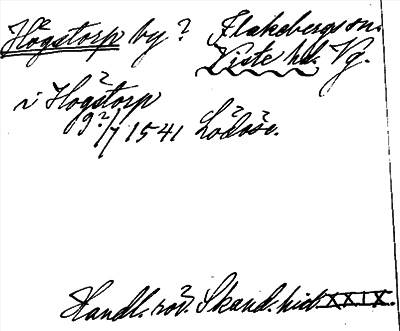 Högstorp by? Flakebergs sn.
Viste hd. Vg.
i Hogstorp
9?/7 1541 Lödöse.
Handl. rör. Skand. hist. XXIX.